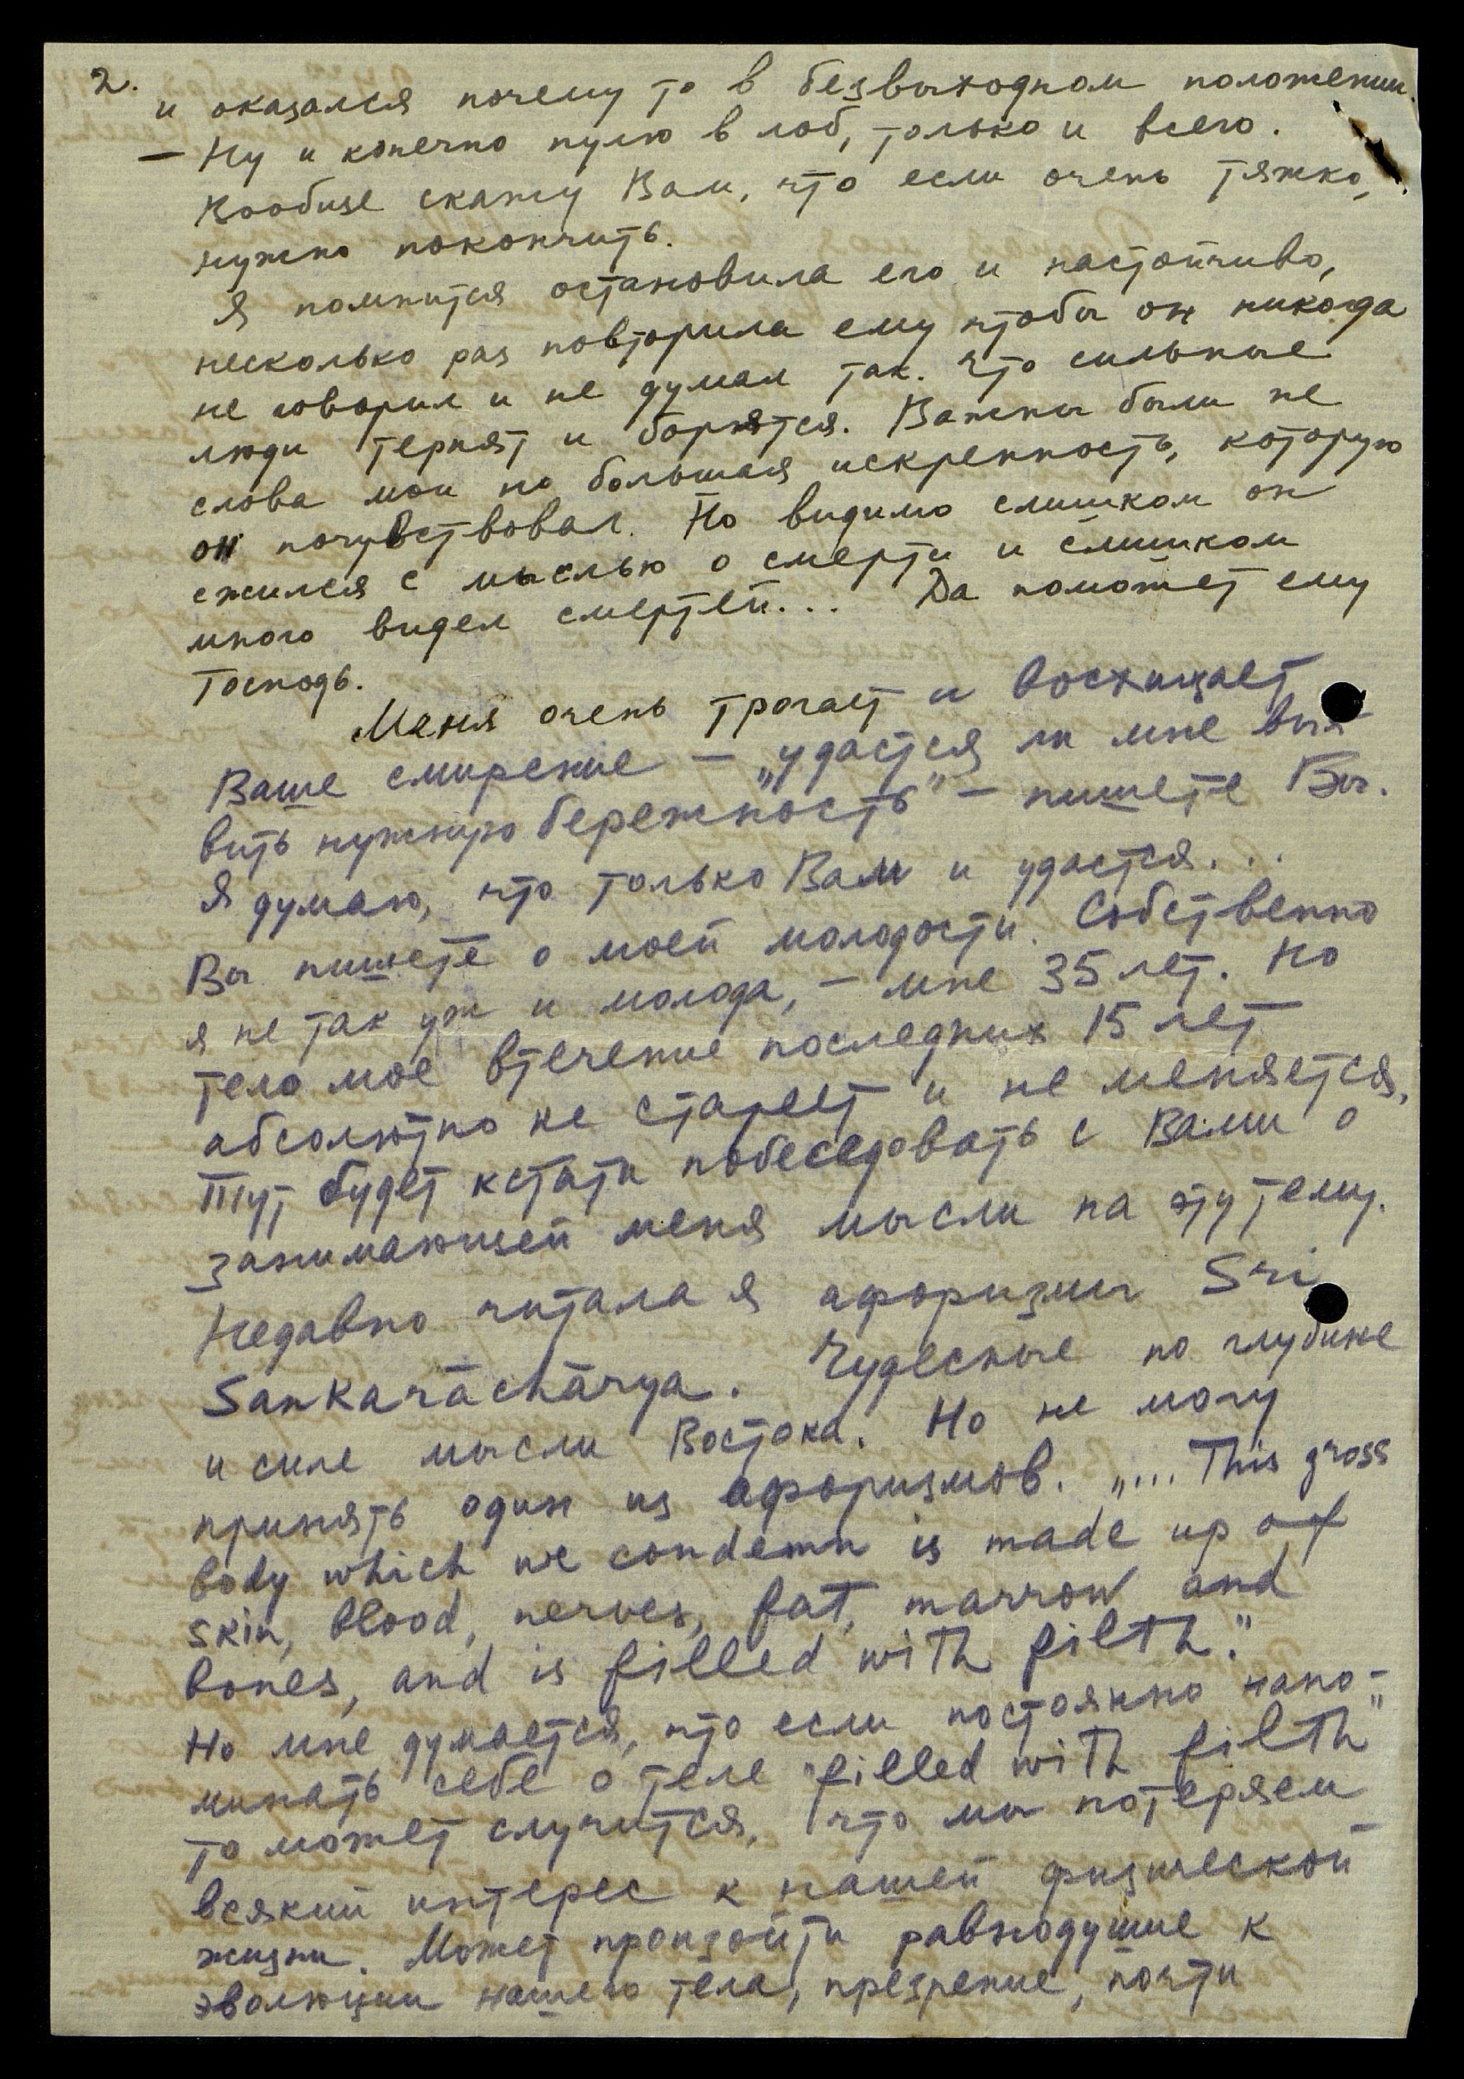 2.
и оказался почему то в безвыходном положении.
— Ну и конечно пулю в лоб, только и всего.
Вообще скажу Вам, что если очень тяжко,
нужно покончить.
Я помнится остановила его и настойчиво,
несколько раз повторила ему чтобы он никогда
не говорил и не думал так. Что сильные
люди терпят и борятся. Важны были не
слова мои но большая искренность, которую
он почувствовал. Но видимо слишком он
сжился с мыслью о смерти и слишком
много видел смертей... Да поможет ему
Господь.
Меня очень трогает и восхищает
Ваше смирение — „удастся ли мне выя-
вить нужную бережность" — пишете Вы.
Я думаю, что только Вам и удастся...
Вы пишете о моей молодости. Собственно
я не так уж и молода, — мне 35 лет. Но
тело мое втечение последних 15 лет
абсолютно не стареет и не меняется.
Тут будет кстати побеседовать с Вами о
занимающей меня мысли на эту тему.
Недавно читала я афоризмы Sri
Sankarāchārya. Чудесные по глубине
и силе мысли Востока. Но не могу
принять один из афоризмов. „... This gross
body which we condemn is made up of
skin, blood, nerves, fat, marrow and
bones, and is filled with filth."
Но мне думается, что если постоянно напо-
минать себе о теле "filled with filth"
то может случится, что мы потеряем
всякий интерес к нашей физической
жизни. Может произойти равнодушие к
эволюции нашего тела, презрение, почти